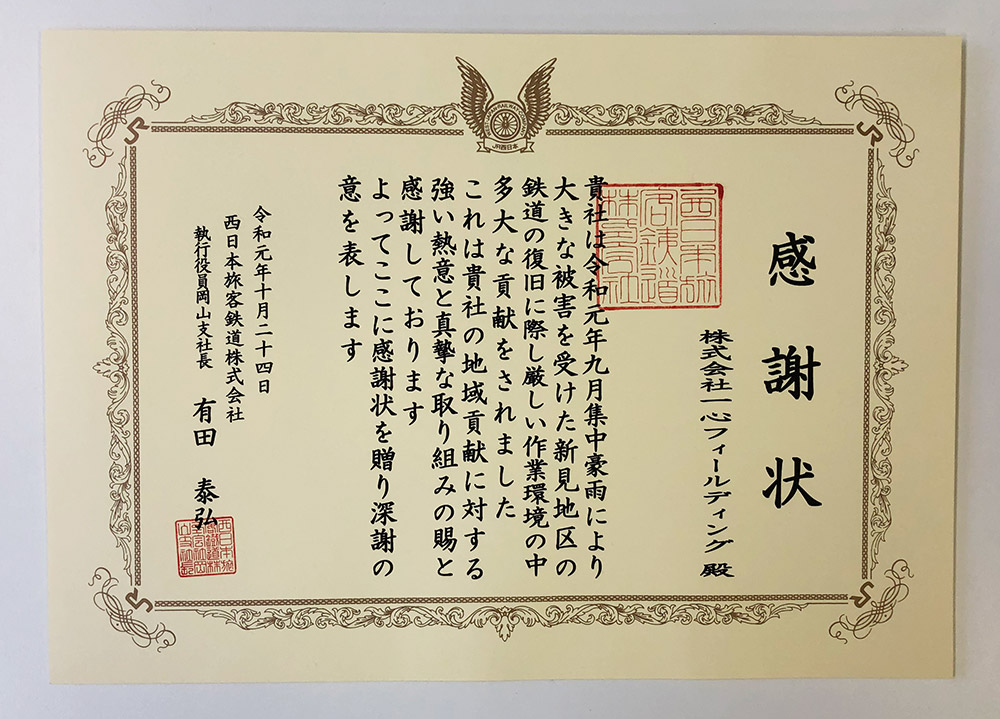 感謝状
株式会社一心フィールディング殿
貴社は令和元年九月集中豪雨により
大きな被害を受けた新見地区の
鉄道の復旧に際し厳しい作業環境の中
多大な貢献をされました
これは貴社の地域貢献に対する
強い熱意と真摯な取り組みの賜と
感謝しております
よってここに感謝状を贈り深謝の
意を表します
令和元年十月二十四日
西日本旅客鉄道株式会社
執行役員岡山支社長 有田 泰弘
JR西日本
西日本旅
客鉄道
株式会社